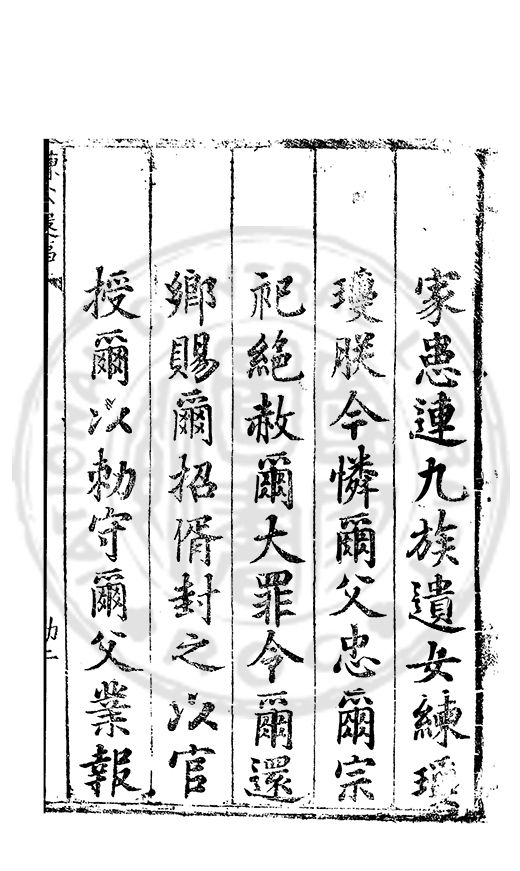 家患連九族遺女練瓊
瓊朕今憐爾父忠爾宗
祀絕赦爾大罪今爾還
鄉賜爾招偦封之以官
授爾以勅守爾父業報